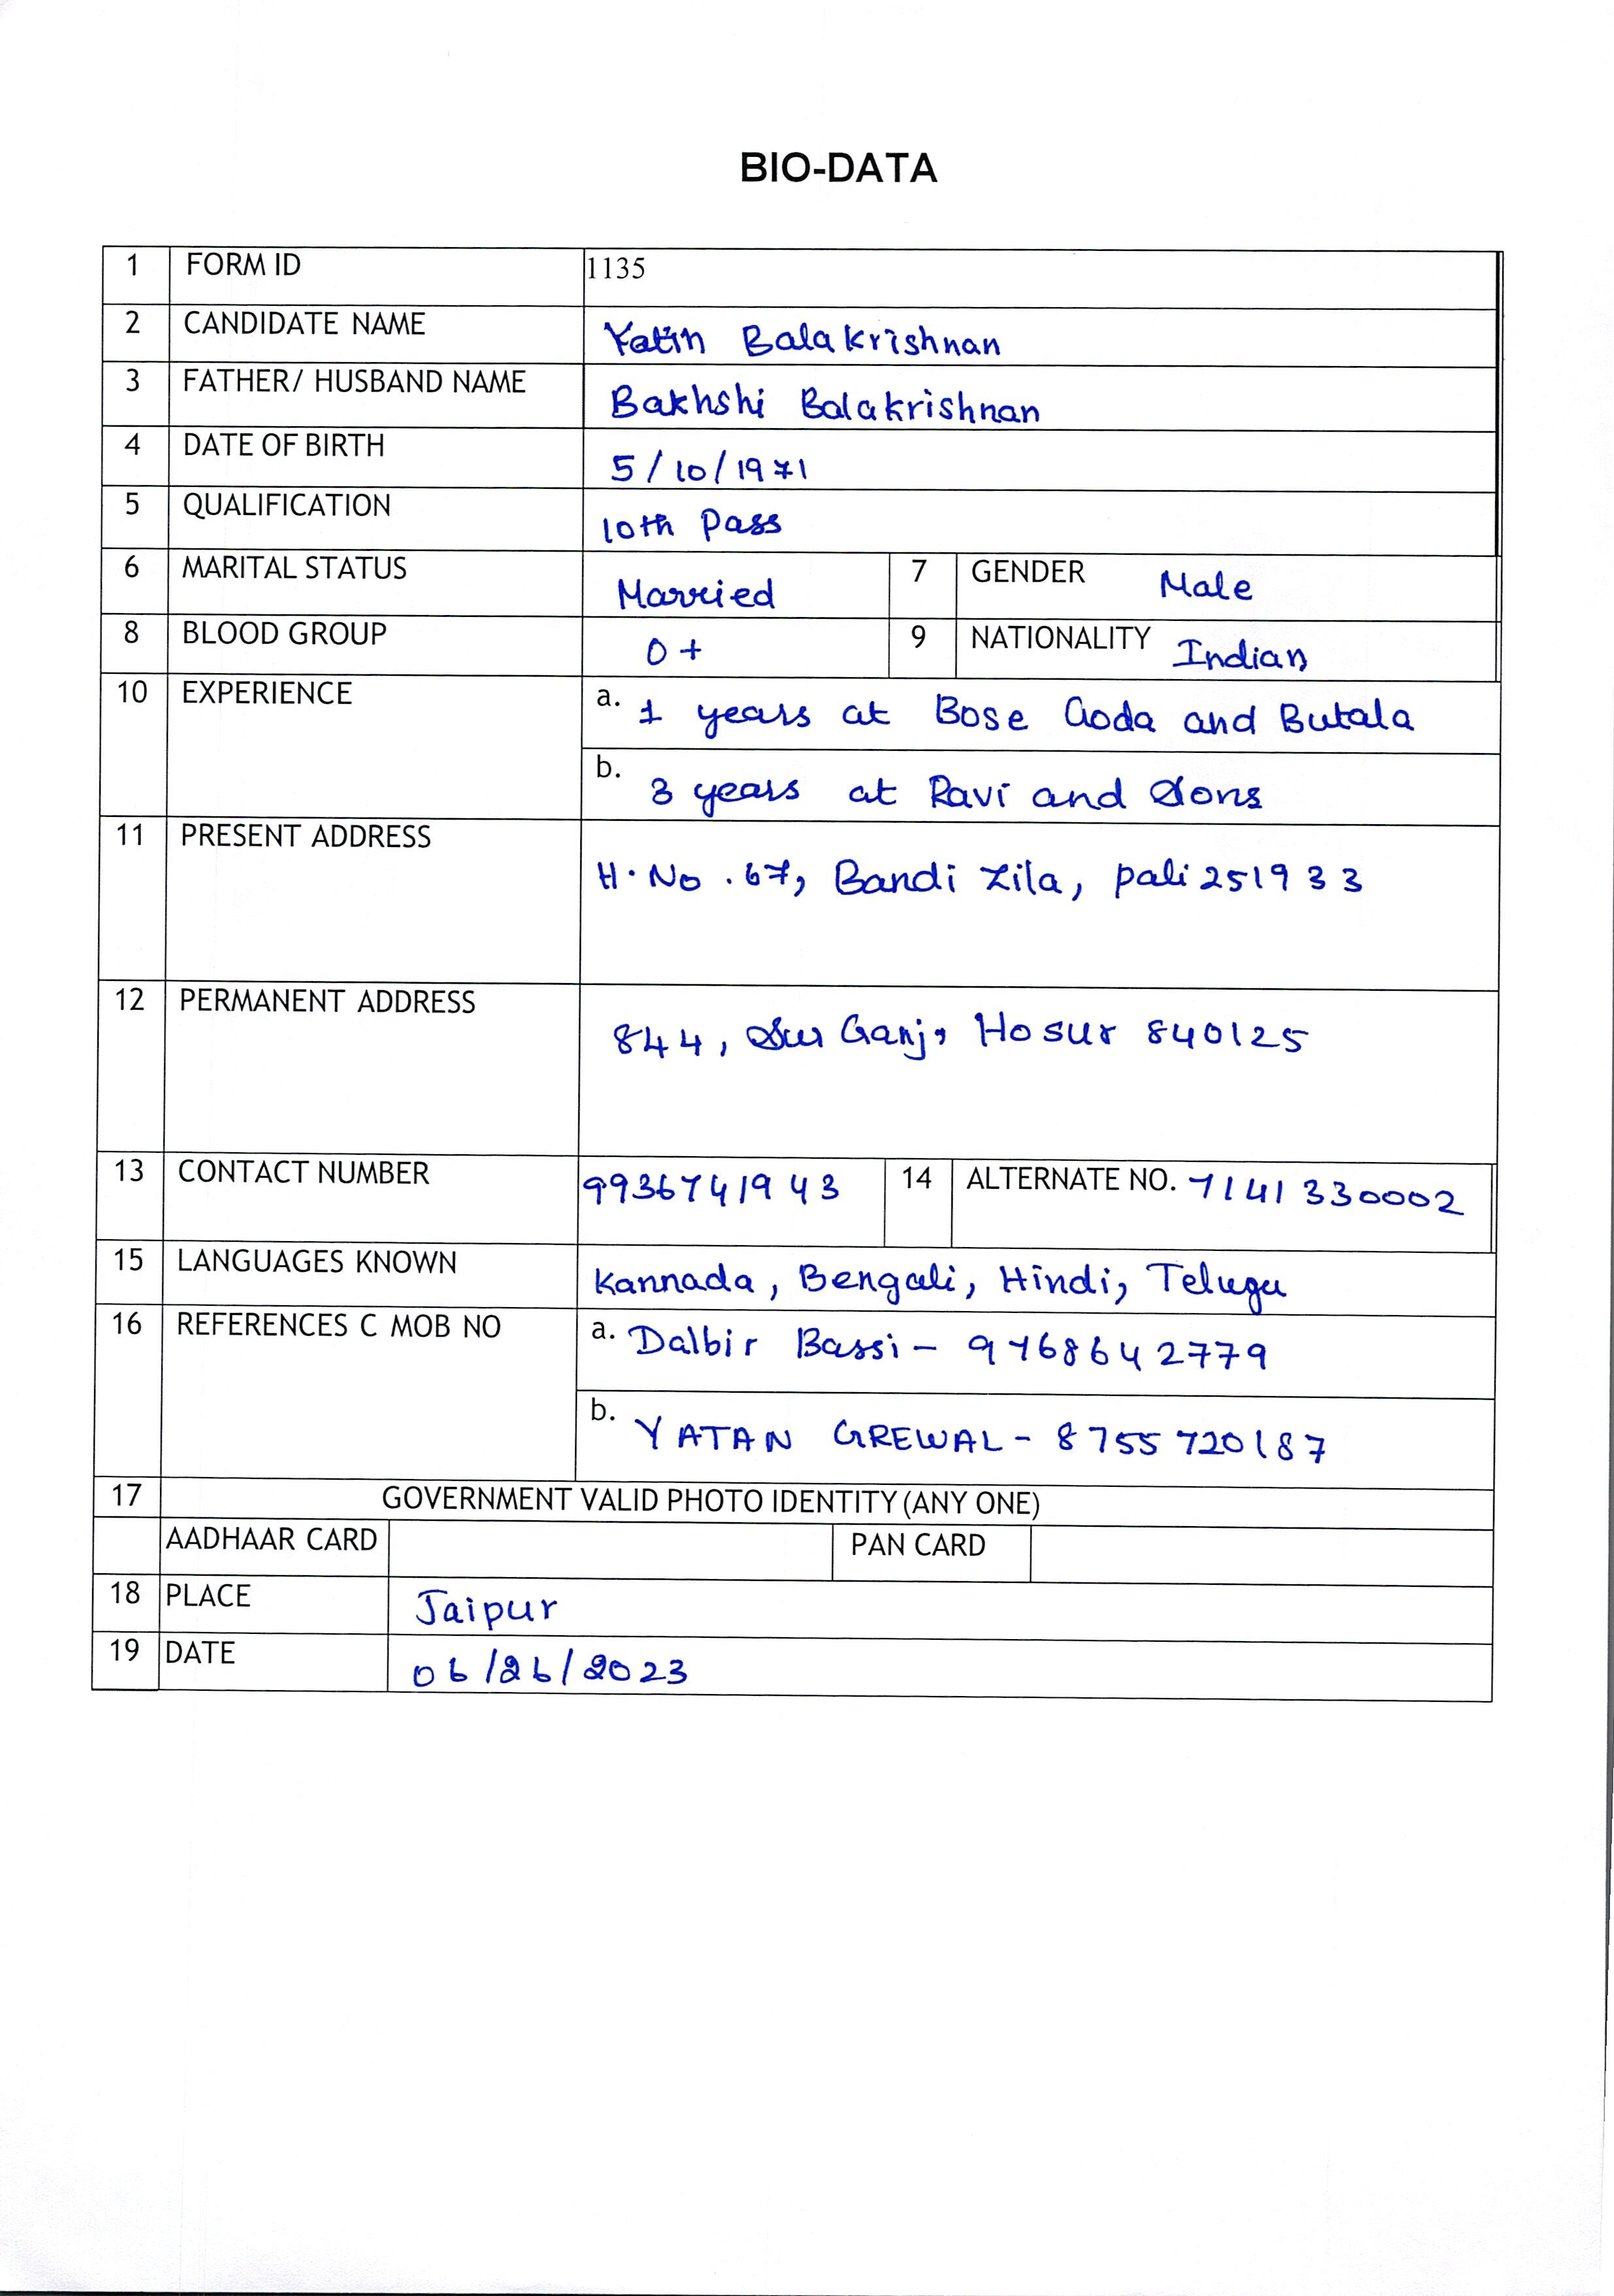 BIO-DATA
1 FORM ID 1135
2 CANDIDATE NAME Yatin Balakrishnan
3 FATHER/ HUSBAND NAME Bakhshi Balakrishnan
4 DATE OF BIRTH 5/10/1971
5 QUALIFICATION 10th Pass
6 MARITAL STATUS Married 7 GENDER Male
8 BLOOD GROUP O+ 9 NATIONALITY Indian
10 EXPERIENCE a. 1 years at Bose Goda and Butala
b. 3 years at Ravi and Sons
11 PRESENT ADDRESS H.No.67, Bandi Zila, Pali 251933
12 PERMANENT ADDRESS 844, Sur Ganj, Hosur 840125
13 CONTACT NUMBER 9936741943 14 ALTERNATE NO. 7141330002
15 LANGUAGES KNOWN Kannada, Bengali, Hindi, Telugu
16 REFERENCES C MOB NO a. Dalbir Bassi - 9768642779
b. YATAN GREWAL - 8755720187
17 GOVERNMENT VALID PHOTO IDENTITY (ANY ONE)
AADHAAR CARD PAN CARD
18 PLACE Jaipur
19 DATE 06/26/2023